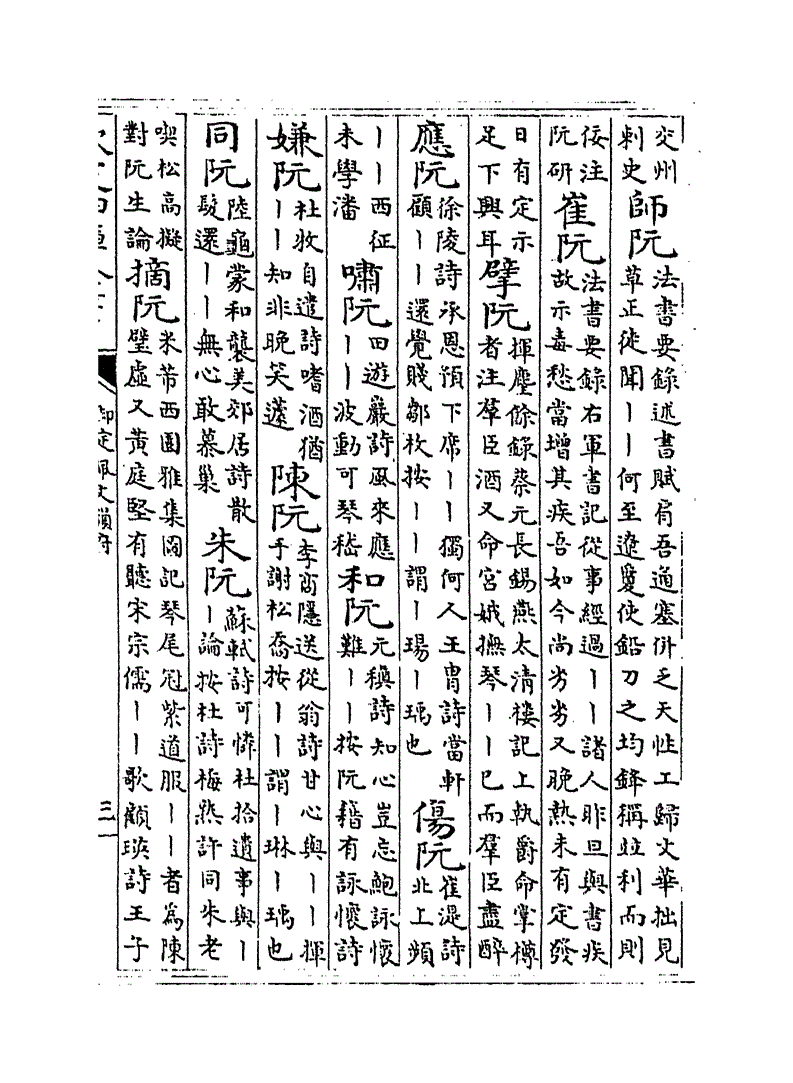 交州刺史 師阮 法書要錄述書賦肩吾通塞併乏天性工歸文華拙見草正徒聞丨丨何至遼夐使鉛刀之均鋒稱並利而則
佞注阮研 崔阮 法書要錄右軍書記從事經過丨丨諸人昨旦與書疾故示毒愁當增其疾吾如今尚劣劣又晚熱未有定發
日有定示足下興耳 擘阮 揮麈餘錄蔡元長錫燕太清樓記上執爵命掌樽者注羣臣酒又命宮娥撫琴丨丨巳而羣臣盡醉
應阮 徐陵詩承恩預下席丨丨獨何人王胄詩當軒顧丨丨還覺賤鄒枚按丨丨謂丨瑒丨瑀也 傷阮 崔湜詩北上頻
丨丨西征未學潘 嘯阮 田遊巖詩風來應丨丨波動可琴嵇 和阮 元稹詩知心豈忘鮑詠懷難丨丨按阮籍有詠懷詩
嫌阮 杜牧自遣詩嗜酒猶丨丨知非晚笑蘧 陳阮 李商隱送從翁詩甘心與丨丨揮手謝松喬按丨丨謂丨琳丨瑀也
同阮 陸龜蒙和襲美郊居詩散髮還丨丨無心敢慕巢 朱阮 蘇軾詩可憐杜拾遺事與丨丨論按杜詩梅熟許同朱老
喫松高擬對阮生論 摘阮 米芾西園雅集圖記琴尾冠紫道服丨丨者為陳璧虛又黃庭堅有聽宋宗儒丨丨歌顧瑛詩王子
御定佩文韻府
三